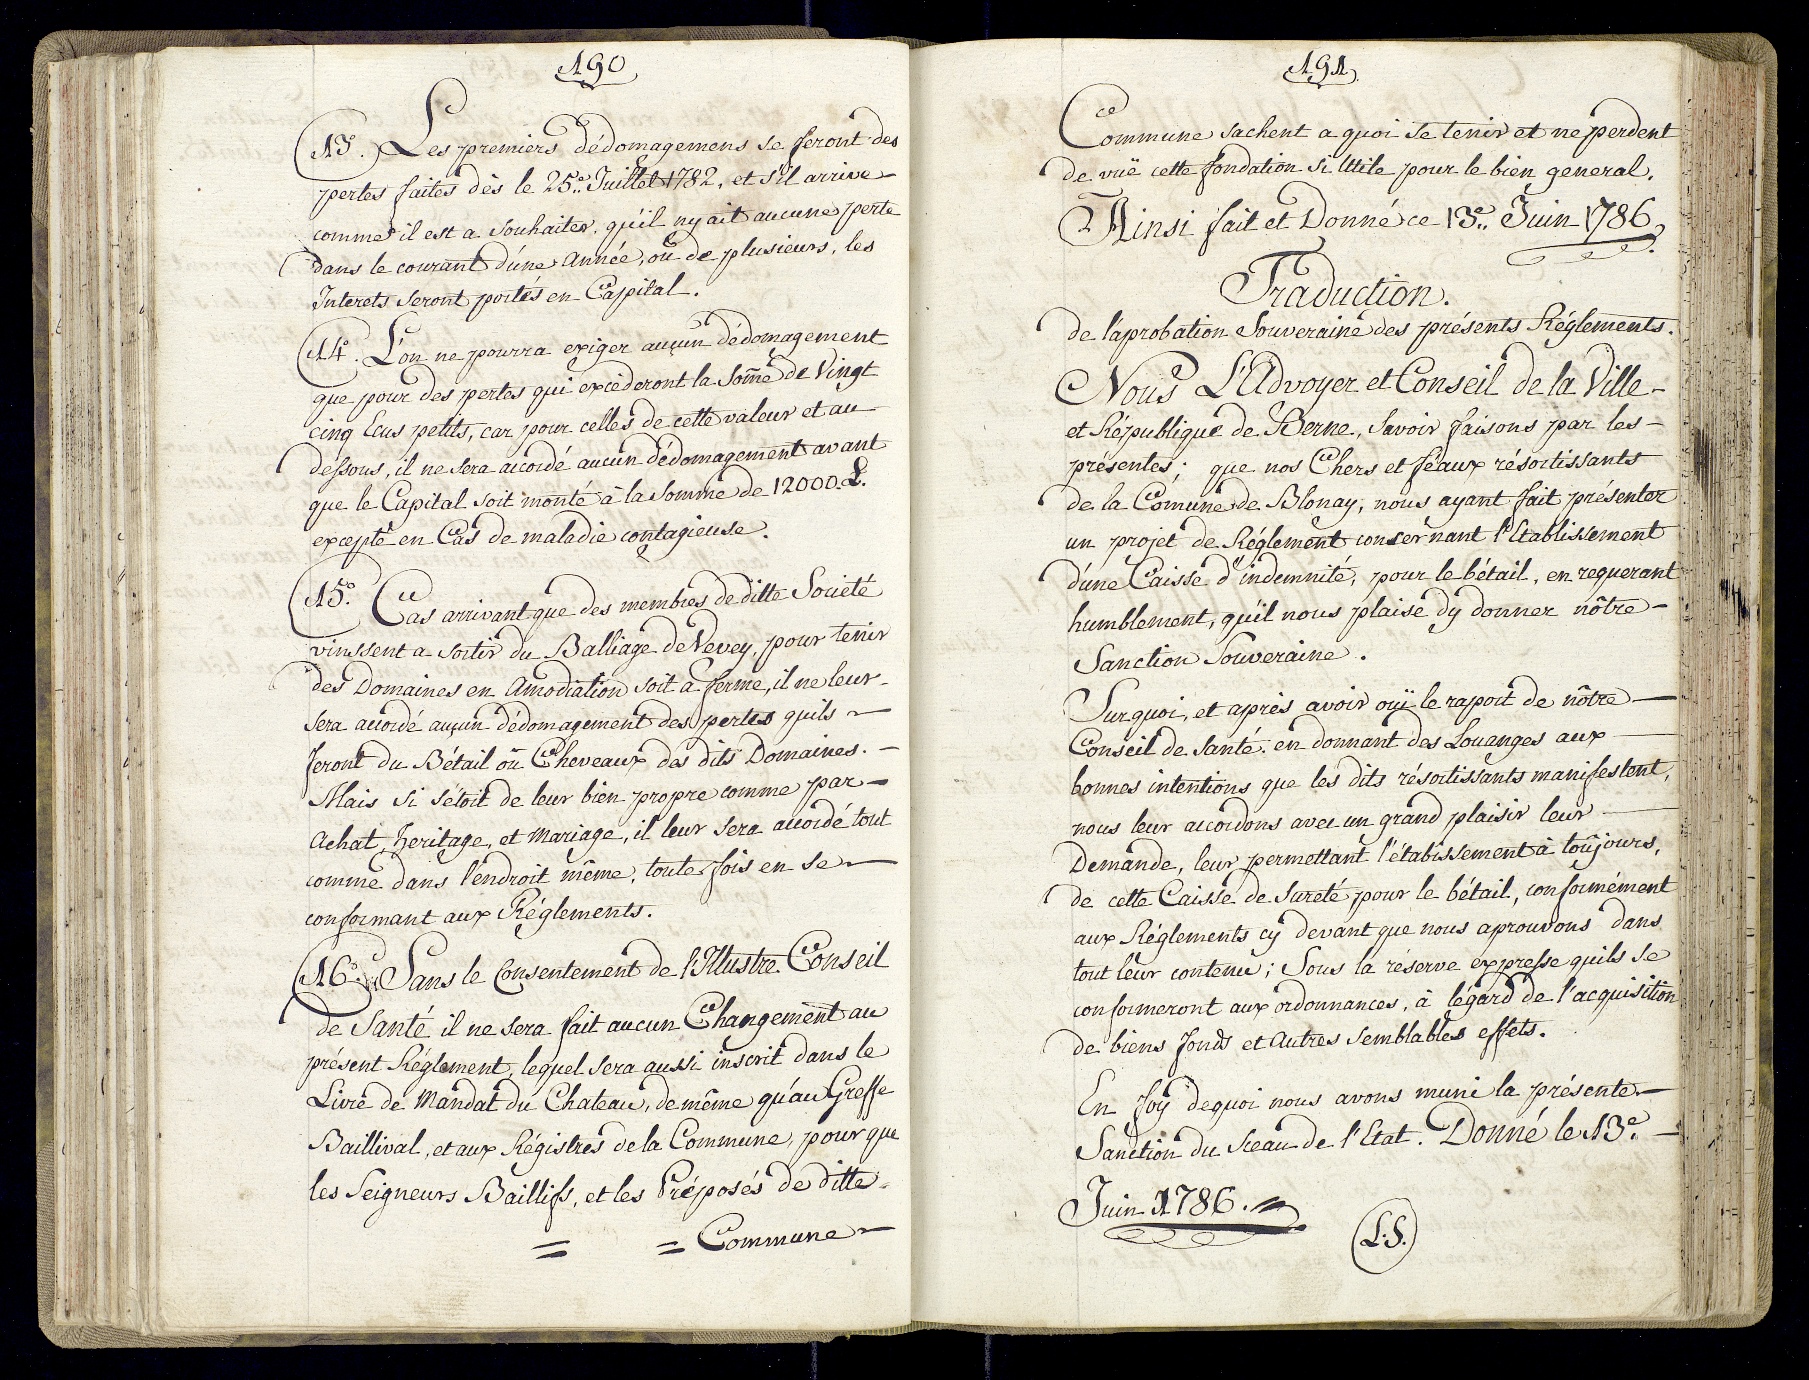 190
13.° Les premiers dédomagemens se feront des
pertes faites dès le 25.e Juillet 1782, et s'il arrive
comme il est a souhaiter, qu'il ny ait aucune perte
dans le courant d'une Année, ou de plusieurs, les
Interets seront portés en Capital.
14.° L'on ne pourra exiger aucun dédomagement
que pour des pertes qui excéderont la Some de Vingt
cinq Ecus petits, car pour celles de cette valeur et au
dessous, il ne sera accordé aucun dédomagement avant
que le Capital soit monté à la Somme de 12000.L.
excepté en Cas de maladie contagieuse.
15.° Cas arrivant que des membres de ditte Societé
vinssent a sortir du Balliage de Vevey, pour tenir
des Domaines en Amodiation soit a ferme, il ne leur
sera accordé aucun dédomagement des pertes quils
feront du Bétail ou Cheveaux des dits Domaines.
Mais si s'étoit de leur bien propre comme par
Achat, heritage, et mariage, il leur sera accordé tout
comme dans l'endroit même, toute fois en se
conformant aux Réglements.
16.° Sans le Consentement de l'Illustre Conseil
de Santé il ne sera fait aucun Changement au
présent Réglement, lequel sera aussi inscrit dans le
Livre de Mandat du Chateau, de même qu'au Greffe
Baillival, et aux Régistres de la Commune, pour que
les Seigneurs Baillifs, et les Préposés de ditte
= = Commune
191
Commune sachent a quoi se tenir et ne perdent
de vuë cette fondation si Utile pour le bien general.
Ainsi fait et Donné ce 13.e Juin 1786.
Traduction.
de l'aprobation Souveraine des présents Réglements.
Nous L'Advoyer et Conseil de la Ville
et République de Berne, Savoir faisons par les
présentes; que nos Chers et féaux résortissants
de la Comune de Blonay, nous ayant fait présenter
un projet de Réglement consernant l'Etablissement
d'une Caisse d'indemnité, pour le bétail, en requerant
humblement, qu'il nous plaise d'y donner nôtre
Sanction Souveraine.
Surquoi, et après avoir oüi le raport de nôtre
Conseil de Santé. en donnant des Louanges aux
bonnes intentions que les dits résortissants manifestent,
nous leur accordons avec un grand plaisir leur
Demande, leur permettant l'étabissement à toûjours,
de cette Caisse de Sureté pour le bétail, conformément
aux Réglements cÿ devant que nous aprouvons dans
tout leur contenu; Sous la réserve expresse quils se
conformeront aux ordonnances, à l'égard de l'acquisition
de biens fonds et Autres semblables effets.
En foÿ dequoi nous avons muni la présente
Sanction du Sceau de l'Etat. Donné le 13.e
Juin 1786.
L.S.